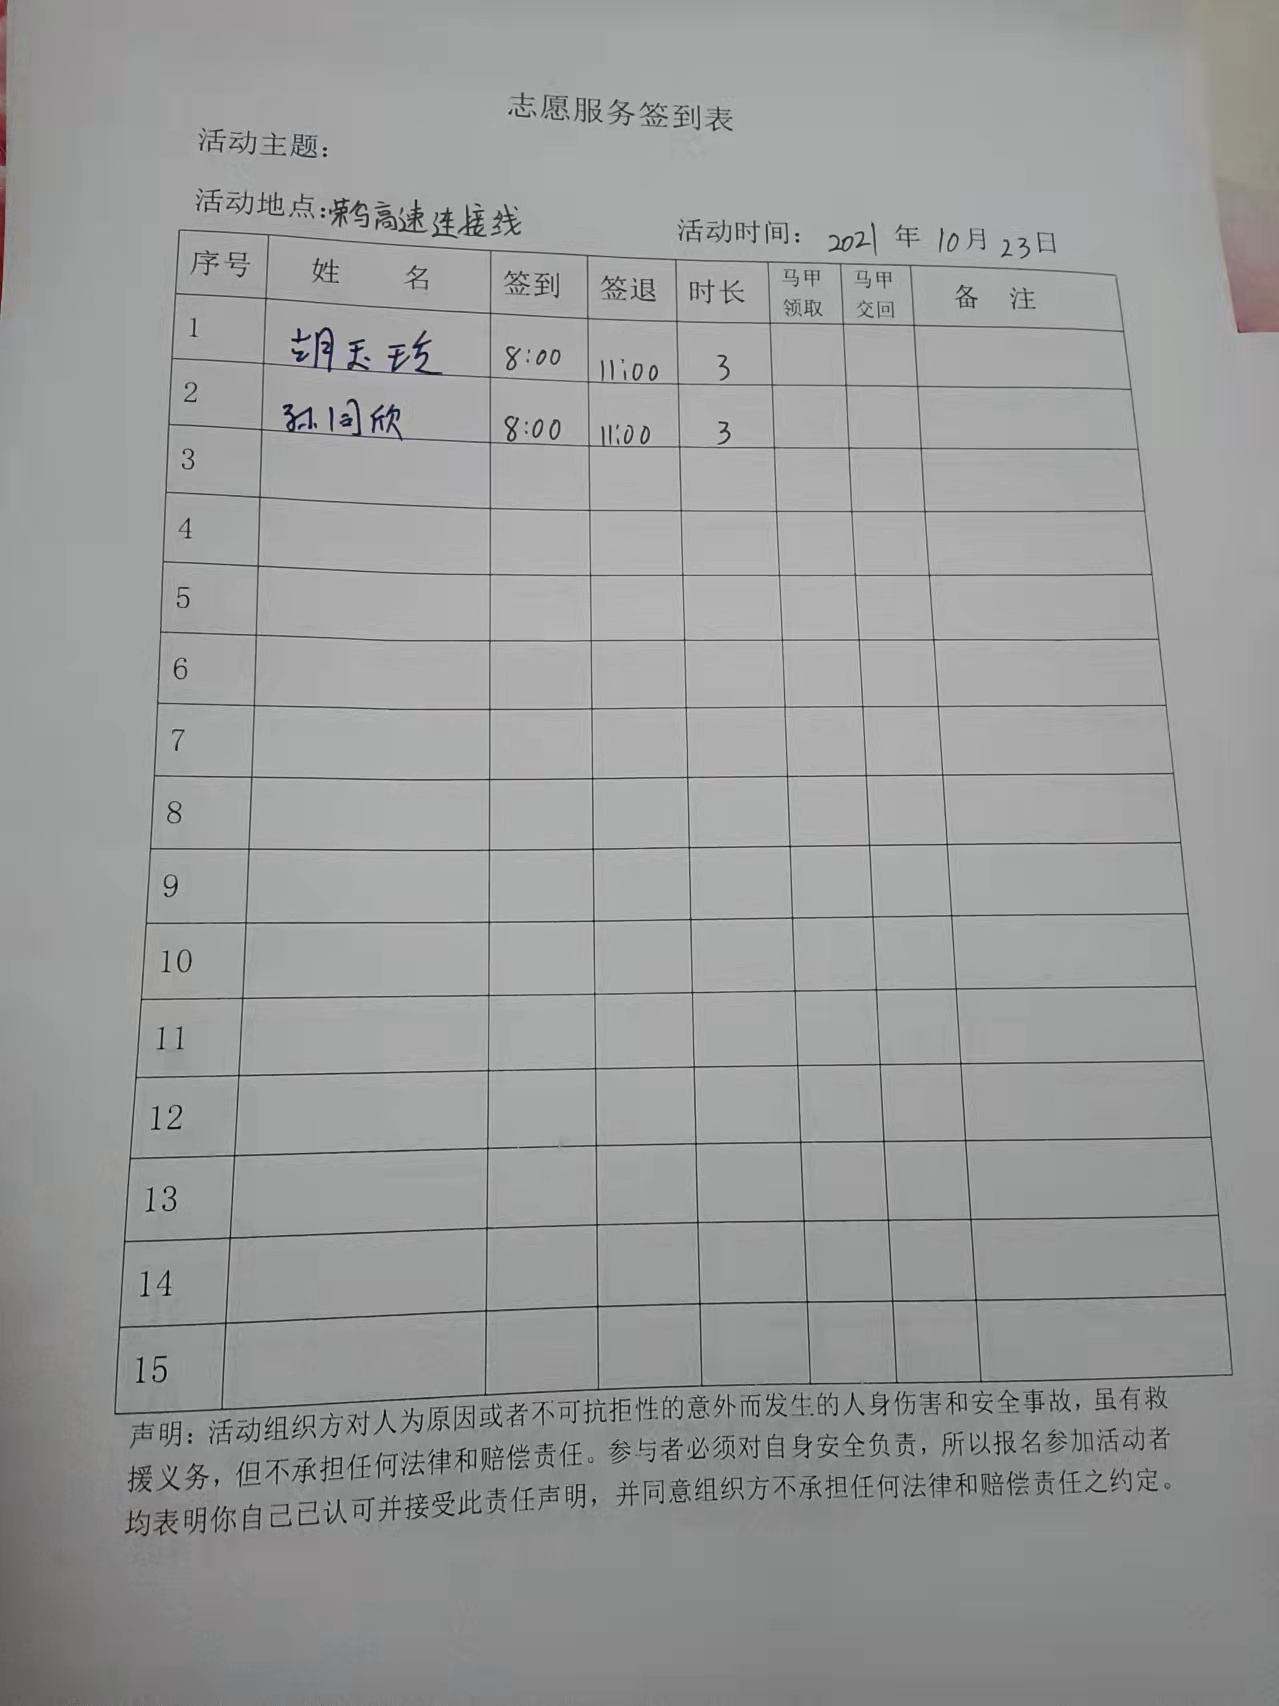 志愿服务签到表
活动主题：
活动地点：荣乌高速连接线 活动时间： 2021 年 10月 23日
序号 姓 名 签到 签退 时长 马甲领取 马甲交回 备 注
1 胡玉珍 8:00 11:00 3
2 孙同欣 8:00 11:00 3
3
4
5
6
7
8
9
10
11
12
13
14
15
声明：活动组织方对人为原因或者不可抗拒性的意外而发生的人身伤害和安全事故，虽有救
援义务，但不承担任何法律和赔偿责任。参与者必须对自身安全负责，所以报名参加活动者
均表明你自己已认可并接受此责任声明，并同意组织方不承担任何法律和赔偿责任之约定。